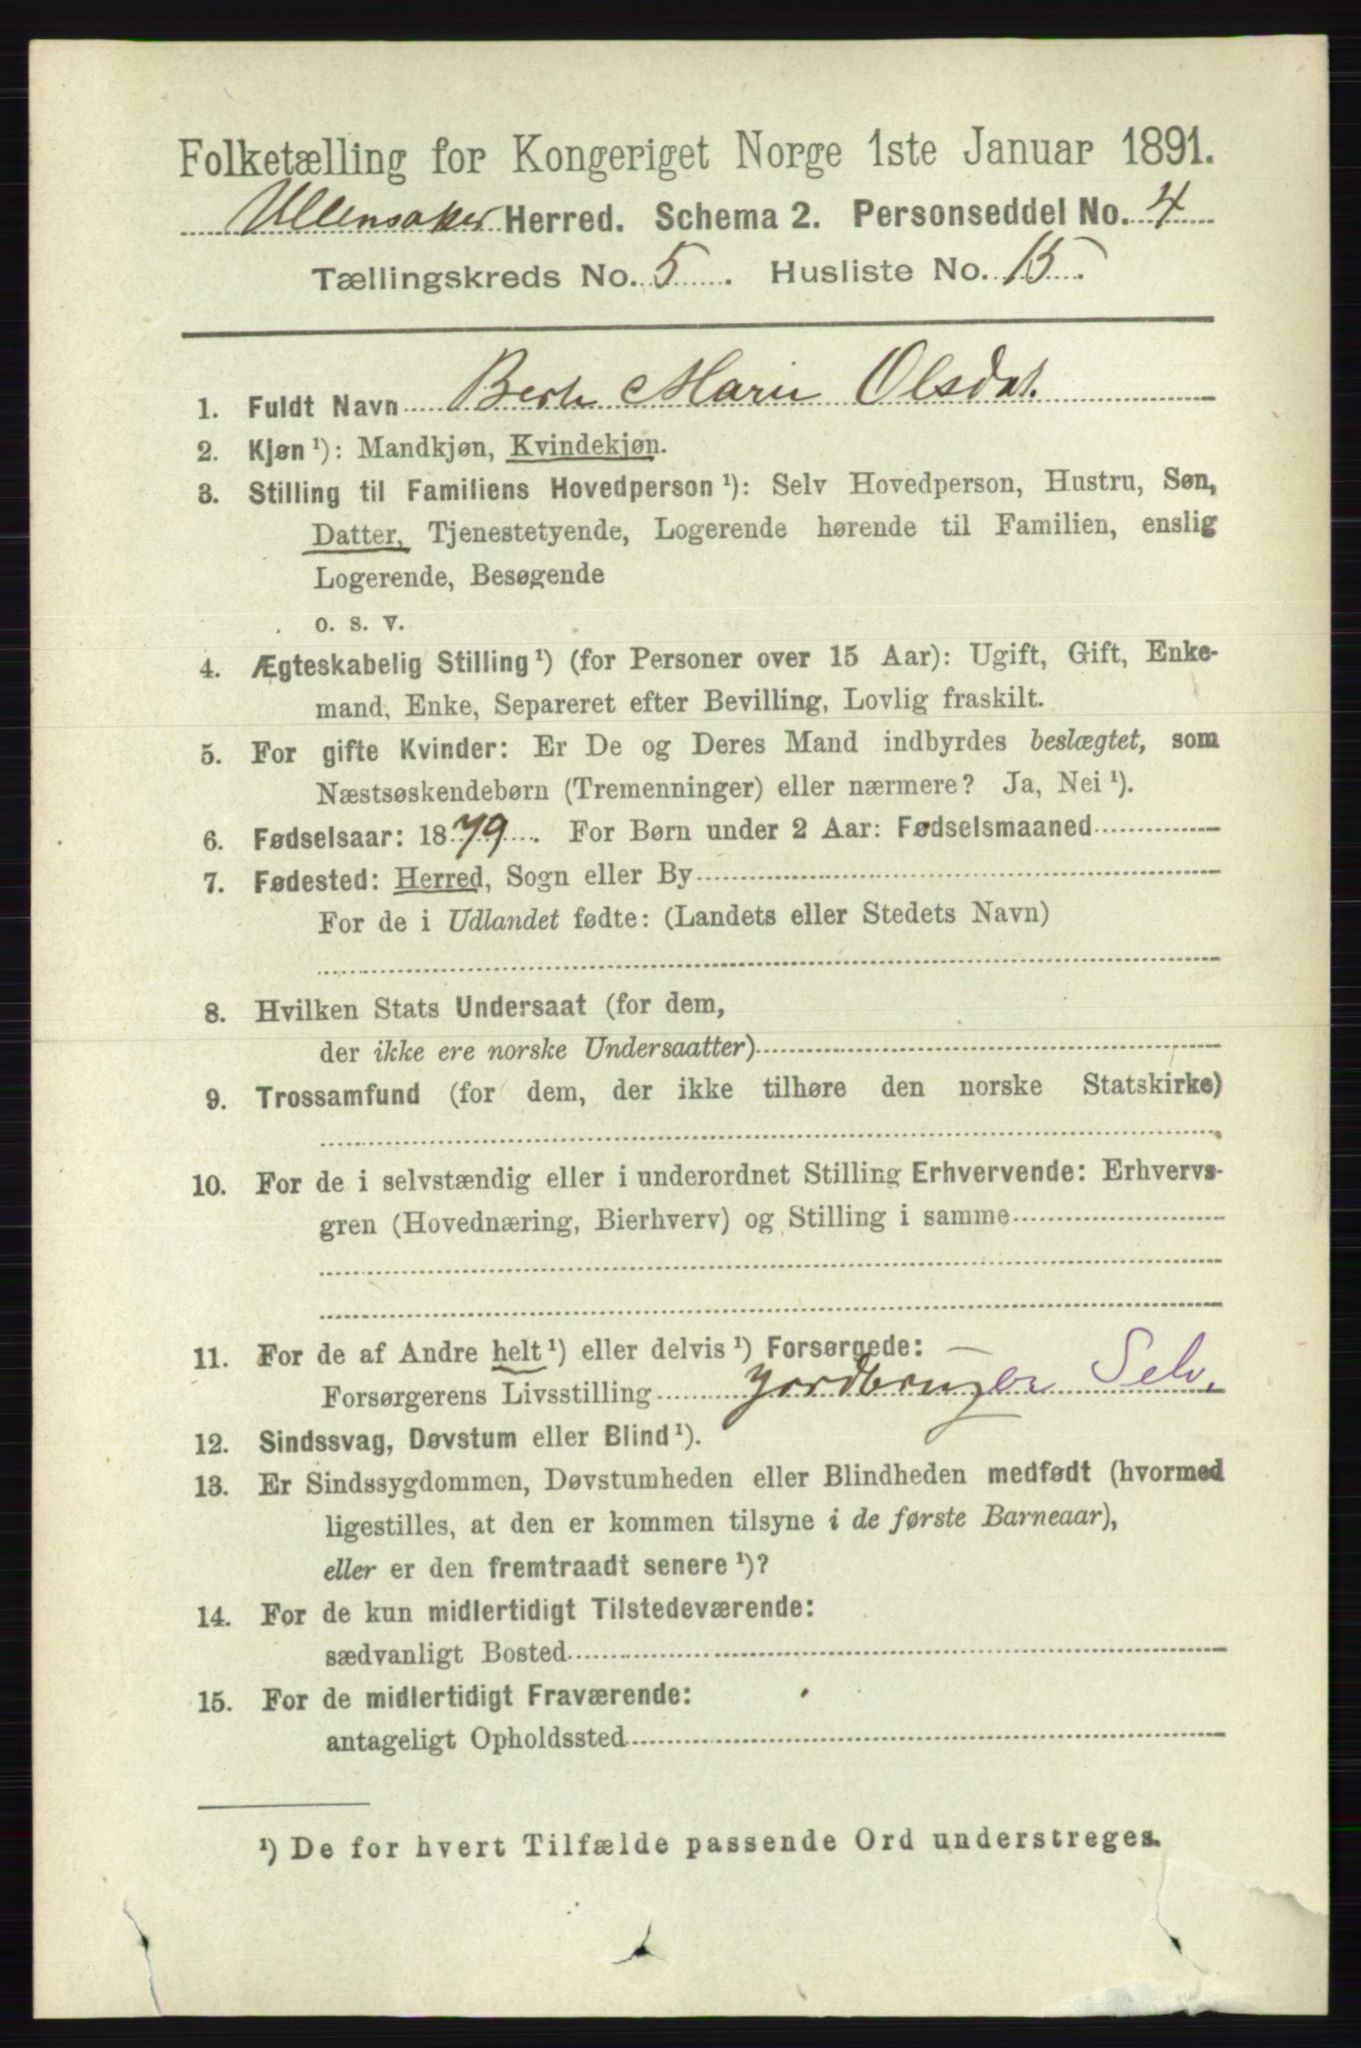 Folketælling for Kongeriget Norge 1ste Januar 1891.
Ullensaker Herred. Schema 2. Personseddel No. 4
Tællingskreds No. 5. Husliste No. 15.
1. Fuldt Navn Berte Marie Olsdat.
2. Kjøn ¹): Mandkjøn, Kvindekjøn.
3. Stilling til Familiens Hovedperson ¹): Selv Hovedperson, Hustru, Søn,
Datter, Tjenestetyende, Logerende hørende til Familien, enslig
Logerende, Besøgende
o. s. v.
4. Ægteskabelig Stilling ¹) (for Personer over 15 Aar): Ugift, Gift, Enke-
mand, Enke, Separeret efter Bevilling, Lovlig fraskilt.
5. For gifte Kvinder: Er De og Deres Mand indbyrdes beslægtet, som
Næstsøskendebørn (Tremenninger) eller nærmere? Ja, Nei ¹).
6. Fødselsaar: 1879. For Børn under 2 Aar: Fødselsmaaned
7. Fødested: Herred, Sogn eller By
For de i Udlandet fødte: (Landets eller Stedets Navn)
8. Hvilken Stats Undersaat (for dem,
der ikke ere norske Undersaatter)
9. Trossamfund (for dem, der ikke tilhøre den norske Statskirke)
10. For de i selvstændig eller i underordnet Stilling Erhvervende: Erhvervs-
gren (Hovednæring, Bierhverv) og Stilling i samme
11. For de af Andre helt ¹) eller delvis ¹) Forsørgede:
Forsørgerens Livsstilling Jordbruger Selv.
12. Sindssvag, Døvstum eller Blind ¹).
13. Er Sindssygdommen, Døvstumheden eller Blindheden medfødt (hvormed
ligestilles, at den er kommen tilsyne i de første Barneaar),
eller er den fremtraadt senere ¹)?
14. For de kun midlertidigt Tilstedeværende:
sædvanligt Bosted
15. For de midlertidigt Fraværende:
antageligt Opholdssted
¹) De for hvert Tilfælde passende Ord understreges.